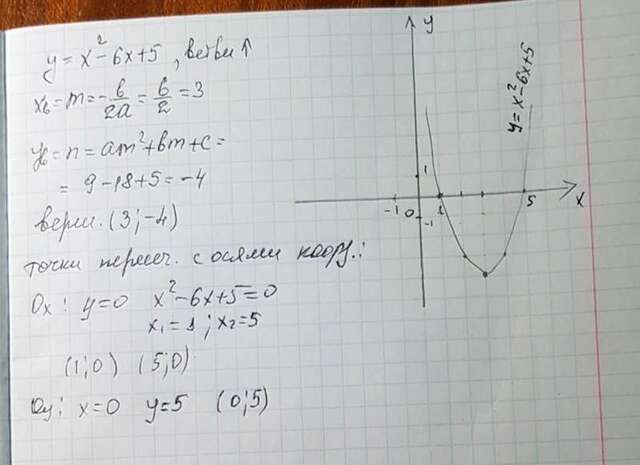 y = x² - 6x + 5 , ветви ↑
xв = m = -b/2a = 6/2 = 3
yв = n = am² + bm + c =
= 9 - 18 + 5 = -4
верш. (3; -4)
точки пересеч. с осями коорд.:
Ox: y = 0 x² - 6x + 5 = 0
x₁ = 1 ; x₂ = 5
(1; 0) (5; 0)
Oy: x = 0 y = 5 (0; 5)
y
y = x² - 6x + 5
1
-1 0 1 5 x
-1